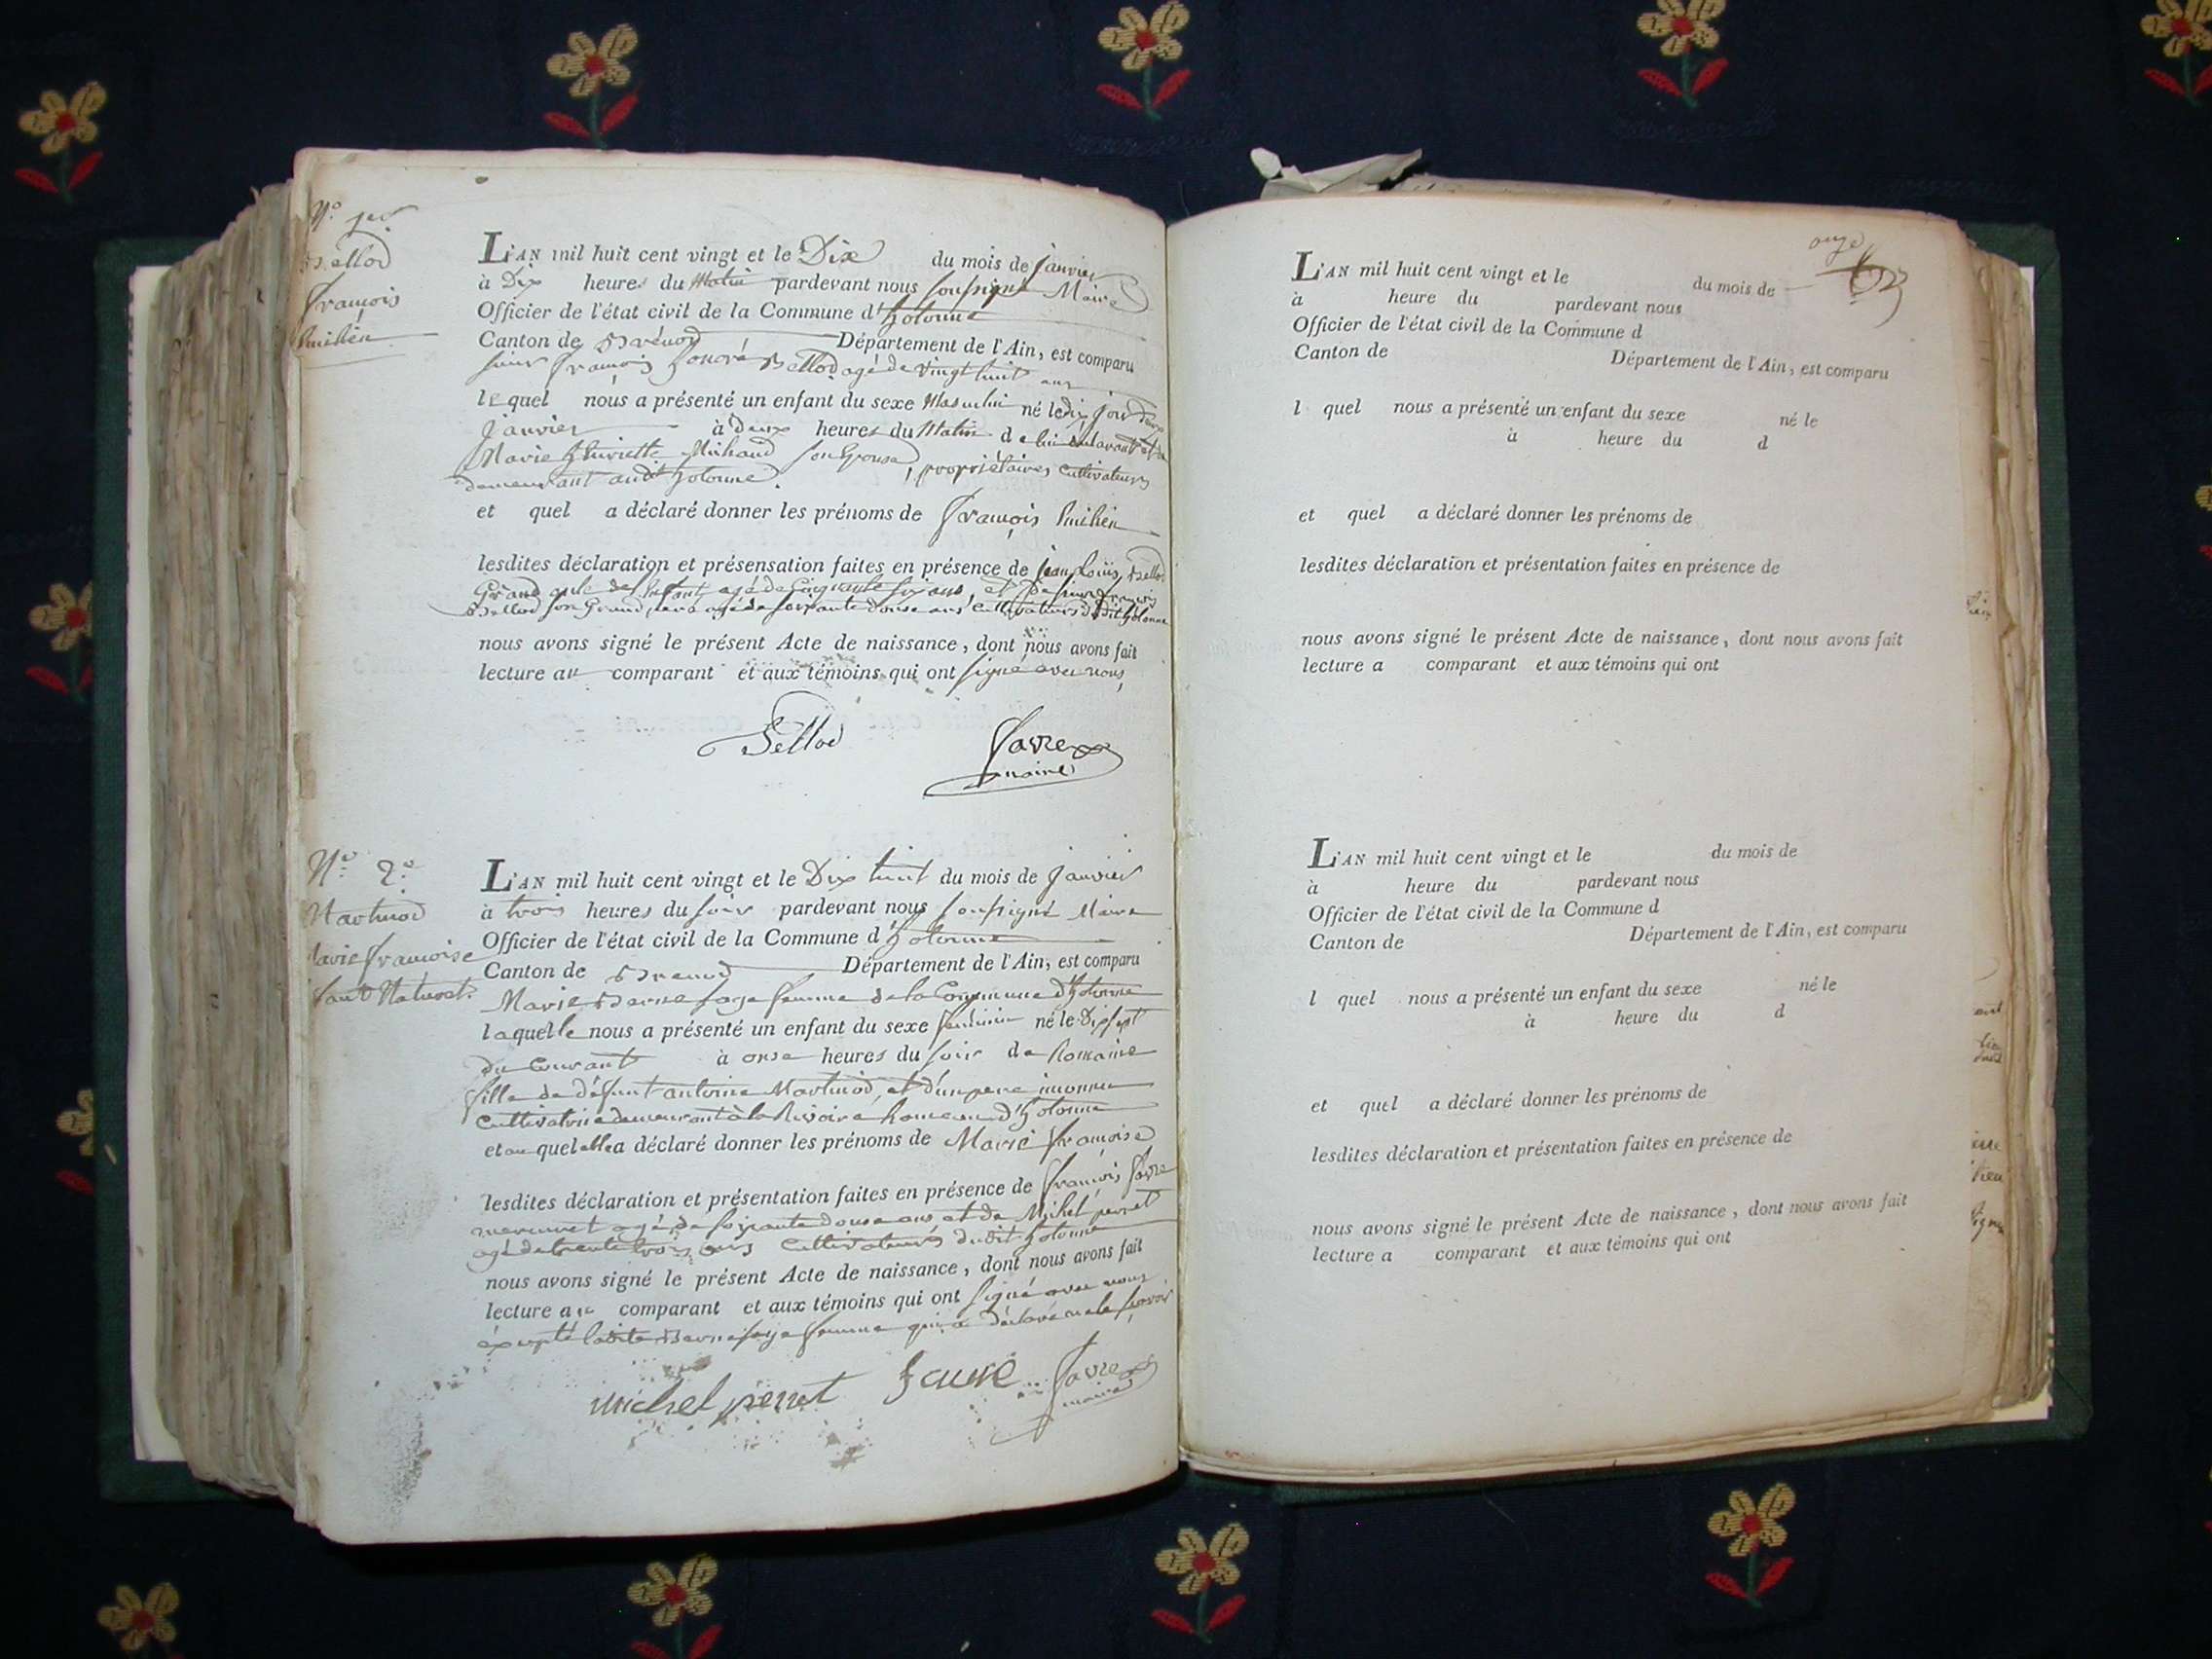 N.° 1er
Bellod
François
L'AN mil huit cent vingt et le Dix du mois de janvier
à Dix heures du Matin pardevant nous soussigné Maire
Officier de l'état civil de la Commune d'hotonne
Canton de Brénod Département de l'Ain, est comparu
sieur François honoré Bellod agé de vingt huit ans
lequel nous a présenté un enfant du sexe Masculin né le dix jour
janvier à deux heures du Matin de lui
Marie henriette Michaud son Epouse, propriétaires cultivateurs
demeurant audt hotonne.
et quel a déclaré donner les prénoms de François
lesdites déclaration et présensation faites en présence de jean Louis Bellod
Grand oncle de l'enfant agé de Cinquante six ans, et de sieur françois
Bellod son Grand pere agé de soixante douse ans cultivateurs dudit hotonne
nous avons signé le présent Acte de naissance, dont nous avons fait
lecture au comparant et aux témoins qui ont signé avec nous,
Bellod
Favre
maire
N.° 2.e
Martinod
Marie françoise
Enfant Naturel.
L'AN mil huit cent vingt et le Dix huit du mois de janvier
à trois heures du soir pardevant nous soussigné Maire
Officier de l'état civil de la Commune d'hotonne
Canton de Brenod Département de l'Ain, est comparu
Marie Berne sage femme de la Commune d'hotonne
laquelle nous a présenté un enfant du sexe feminin né le Dix sept
du Courant à onse heures du soir de Romaine
fille de défunt antoine Martinod, et d'un pere inconnu
Cultivatrice demeurant à la Rivoire hameau d'hotonne
et au quel elle a déclaré donner les prénoms de Marie françoise
lesdites déclaration et présentation faites en présence de françois favre
agé de soixante douse ans, et de Michel perret
agé de trente trois ans Cultivateurs dudit hotonne
nous avons signé le présent Acte de naissance, dont nous avons fait
lecture a la comparant et aux témoins qui ont signé avec nous
éxcepté ladite Berne sage femme qui a déclaré ne le savoir
michel perret favre Favre
maire
onze
L'AN mil huit cent vingt et le du mois de
à heure du pardevant nous
Officier de l'état civil de la Commune d
Canton de Département de l'Ain, est comparu
l quel nous a présenté un enfant du sexe né le
à heure du d
et quel a déclaré donner les prénoms de
lesdites déclaration et présentation faites en présence de
nous avons signé le présent Acte de naissance, dont nous avons fait
lecture a comparant et aux témoins qui ont
L'AN mil huit cent vingt et le du mois de
à heure du pardevant nous
Officier de l'état civil de la Commune d
Canton de Département de l'Ain, est comparu
l quel nous a présenté un enfant du sexe né le
à heure du d
et quel a déclaré donner les prénoms de
lesdites déclaration et présentation faites en présence de
nous avons signé le présent Acte de naissance, dont nous avons fait
lecture a comparant et aux témoins qui ont